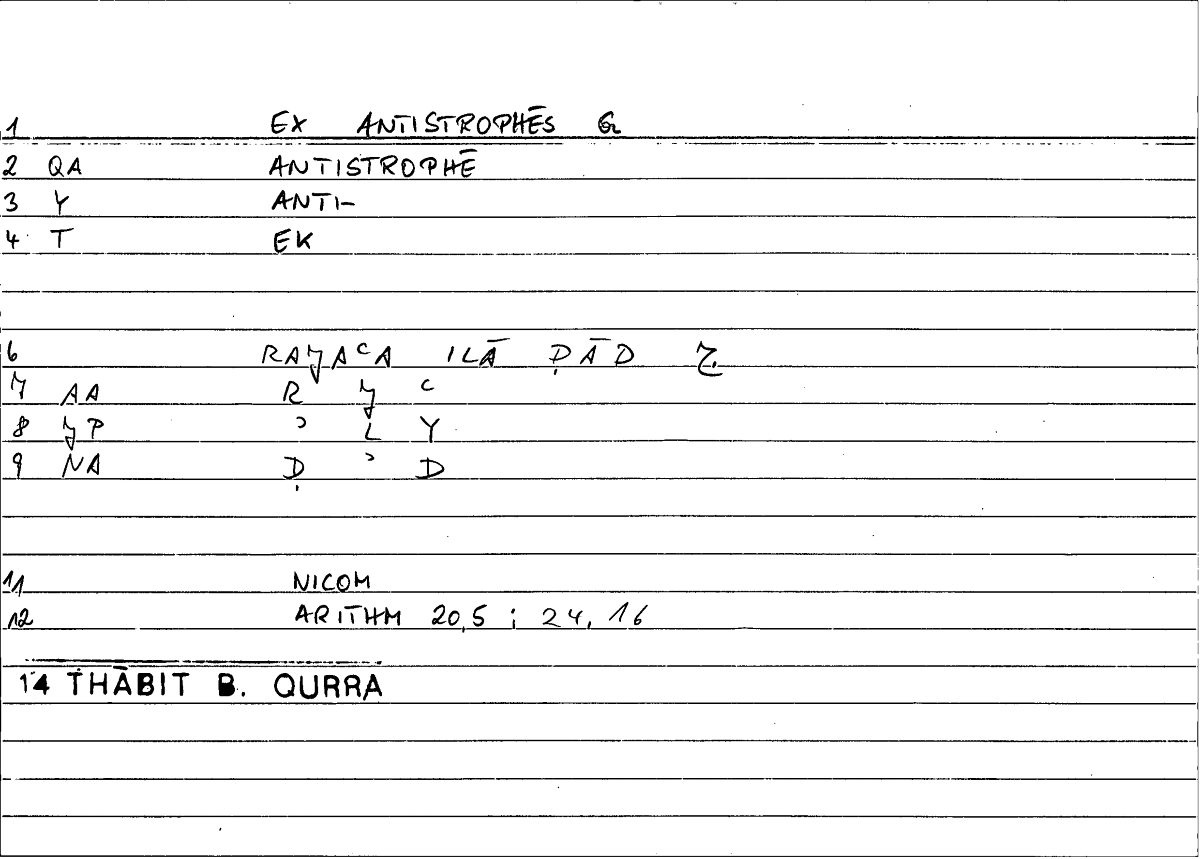 1 EX ANTISTROPHĒS G
2 QA ANTISTROPHĒ
3 Y ANTI-
4 T EK
6 RAJAʿA ILĀ ḌĀD
7 AA R J ʿ
8 JP ʾ L Y
9 NA Ḍ ʾ D
11 NICOM
12 ARITHM 20,5 ; 24, 16
14 THĀBIT B. QURRA